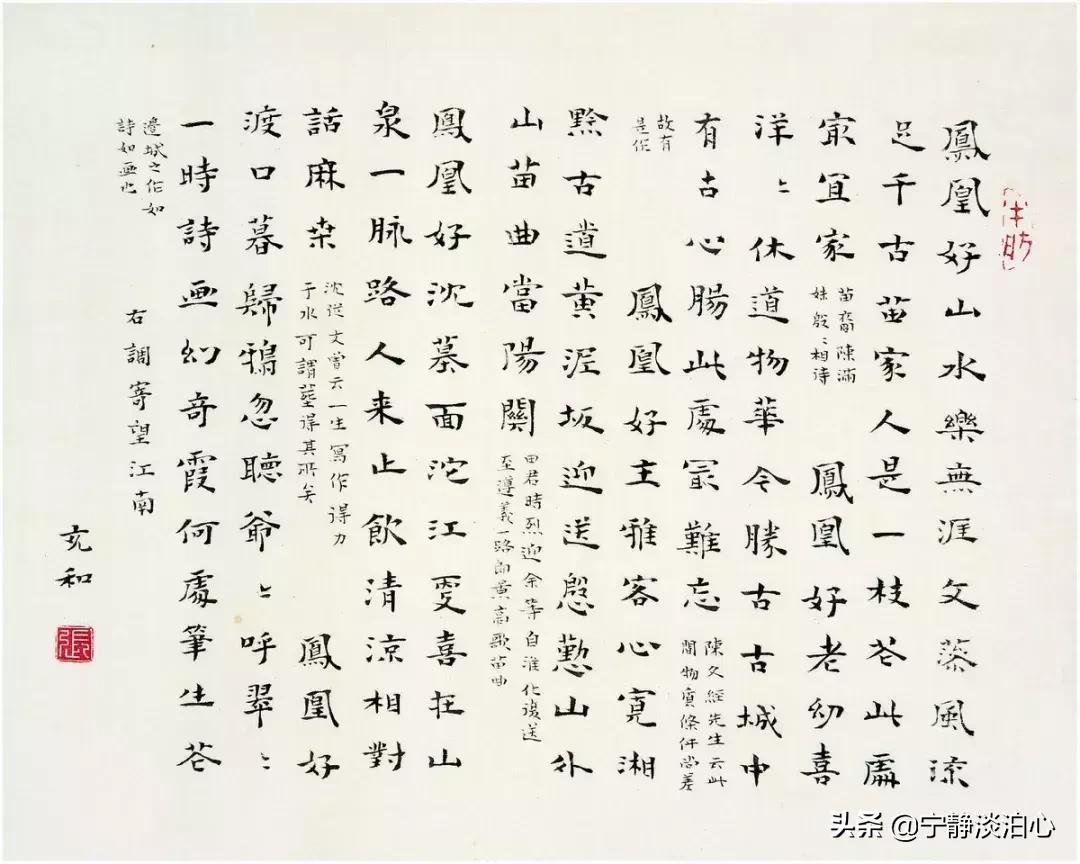 鳳凰好山水樂無涯文藻風流
足千古苗家人是一枝花此處
最宜家
苗裔陳滿
妹殷〻相待
鳳凰好老幼喜
洋〻休道物華今勝古古城中
有古心腸此處最難忘
陳文經先生云此
間物質條件尚差
故有
是作
鳳凰好主雅客心寬湘
黔古道黃泥坂迎送慇懃山外
山苗曲當陽關
田君時烈迎余等自淮化復送
至遵義一路郎黃高歌苗曲
鳳凰好沈墓面沱江更喜在山
泉一脉路人来止飲清涼相對
話麻桒
沈從文曾云一生寫作得力
于水可謂葬得其所矣
鳳凰好
渡口暮歸鴉忽聽爺〻呼翠〻
一時詩画幻奇霞何處筆生花
邊城之作如
詩如画也
右調寄望江南
充和
張
头条 @宁静淡泊心